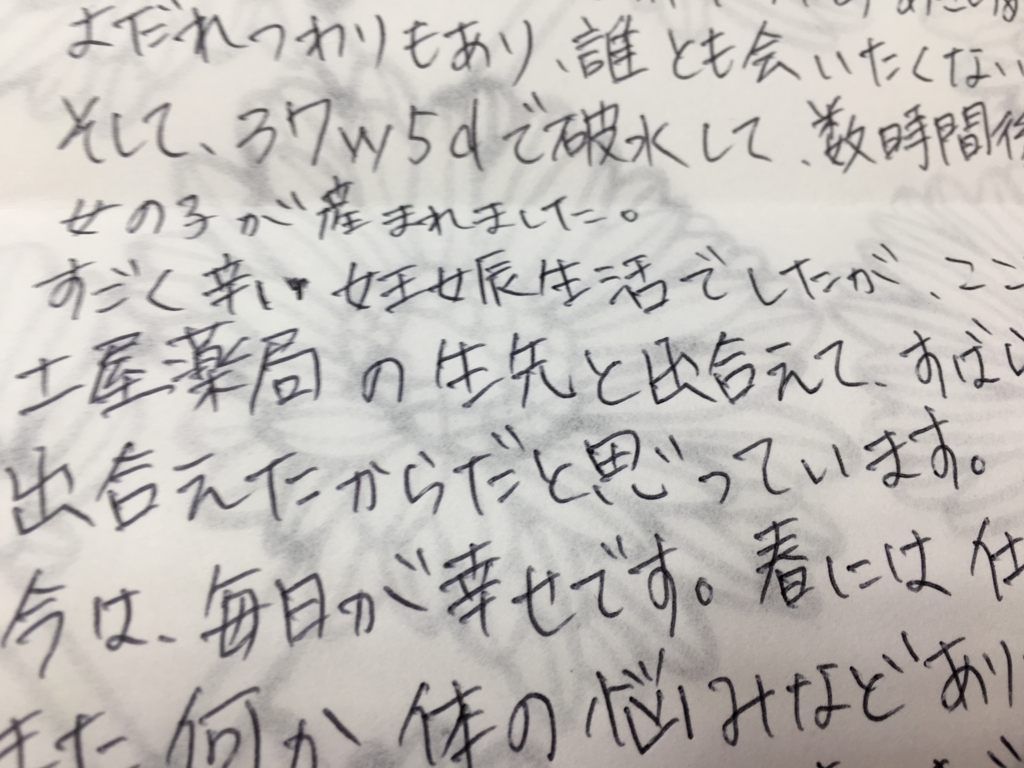 よだれつわりもあり、誰とも会いたくない
そして、37w5dで破水して、数時間後
女の子が産まれました。
すごく辛い妊娠生活でしたが、ここ
土屋薬局の生先と出合えて、すばし
出合えたからだと思っています。
今は、毎日が幸せです。春には仕
また何か体の悩みなどあり